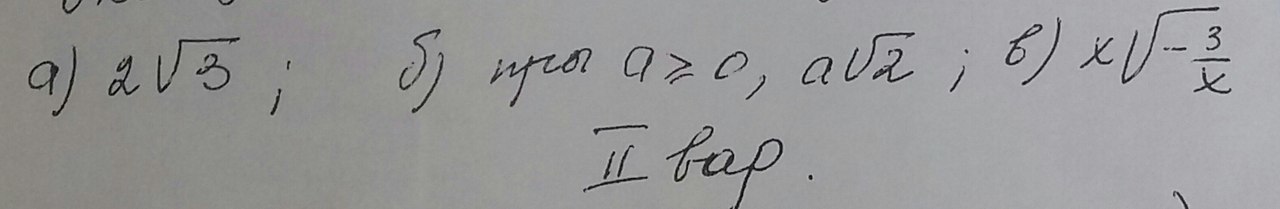 а) 2√3 ; б) при a ≥ 0, a√2 ; в) x√(-3/x)
II вар.